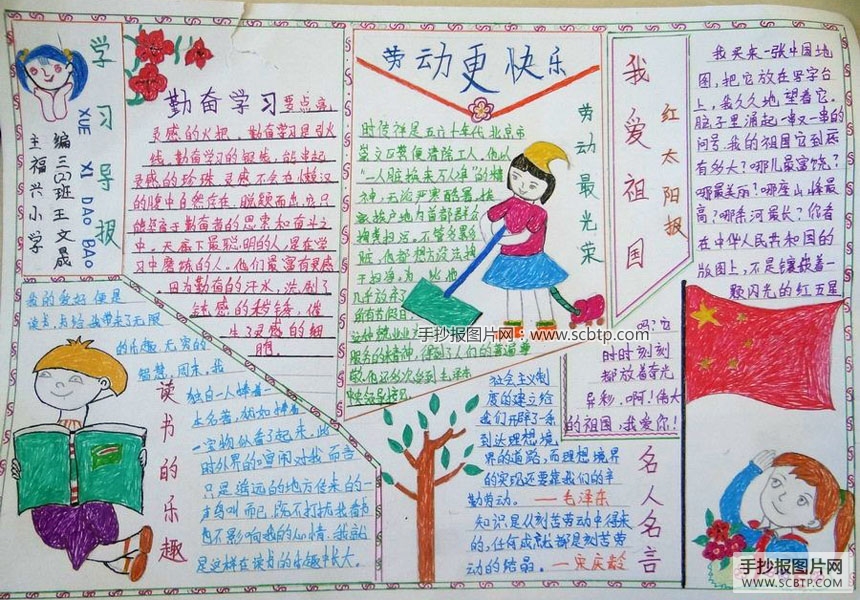 学习导报
XUE XI DAO BAO
主编 三(2)班 王文晟
福兴小学
勤奋学习要点滴
灵感的火把，勤奋学习是引火
线，勤奋学习的银线，能串起
灵感的珍珠，灵感不会在懒汉
的腹中自然存在，脱颖而出，它只
能产生于勤奋者的思索和奋斗之
中，天底下最聪明的人，是在学
习中磨炼的人。他们最富有灵感，
因为勤奋的汗水，洗刷了
钝感的秽锤，催
生了灵感的翅
膀。
劳动更快乐
劳动最光荣
时传祥是五六十年代北京市
崇文区粪便清除工人，他以
“一人脏换来万人净”的精
神，无论严寒酷暑，挨
家挨户地为首都群众
服务的精神，得到了人们的普遍尊
敬，他还多次受到毛泽东
我爱祖国
红太阳报
我买来一张中国地
图，把它放在写字台
上，我久久地望着它。
脑子里涌起一串又一串的
问号：我的祖国它到底
有多大？哪儿最富饶？
哪最美丽？哪座山峰最
高？哪条河最长？你看
在中华人民共和国的
版图上，不是镶嵌着一
颗闪光的红五星
吗？它
时时刻刻
都放着奇光
异彩。啊！伟大
的祖国，我爱你！
读书的乐趣
我的爱好便是
读书，书给我带来了无限
的乐趣，无穷的
智慧。周末，我
独自一人捧着
一宝物似看了起来，此
时外界的喧闹对我而言
只是遥远的地方传来的一
声鸟叫而已，既不打扰我看书
也不影响我的心情。我就
是这样在读书的乐趣中长大。
名人名言
社会主义制
度的建立给
我们开辟了一条
到达理想境
界的道路，而理想境界
的实现还要靠我们的辛
勤劳动。——毛泽东
知识是从刻苦劳动中得来
的，任何成就都是刻苦劳
动的结晶。——宋庆龄
手抄报图片网 www.scbtp.com
手抄报图片网
WWW.SCBTP.COM